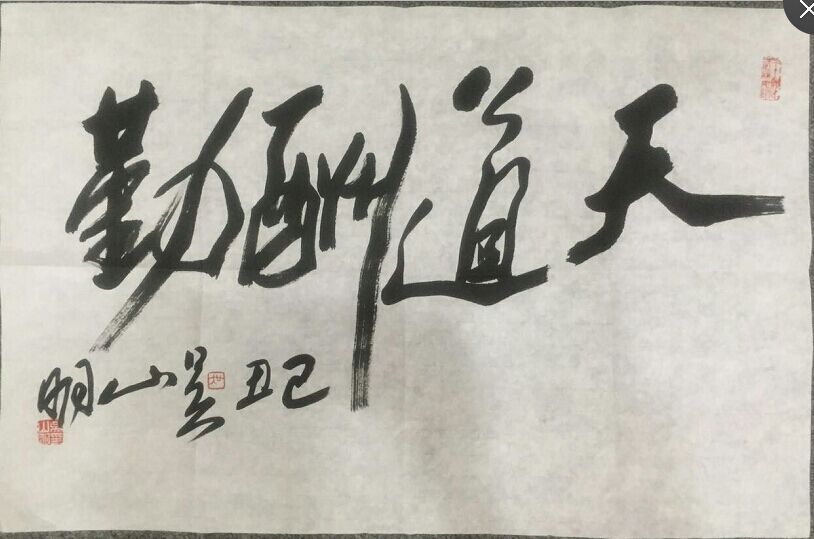 天道酬勤
己丑 吴山明